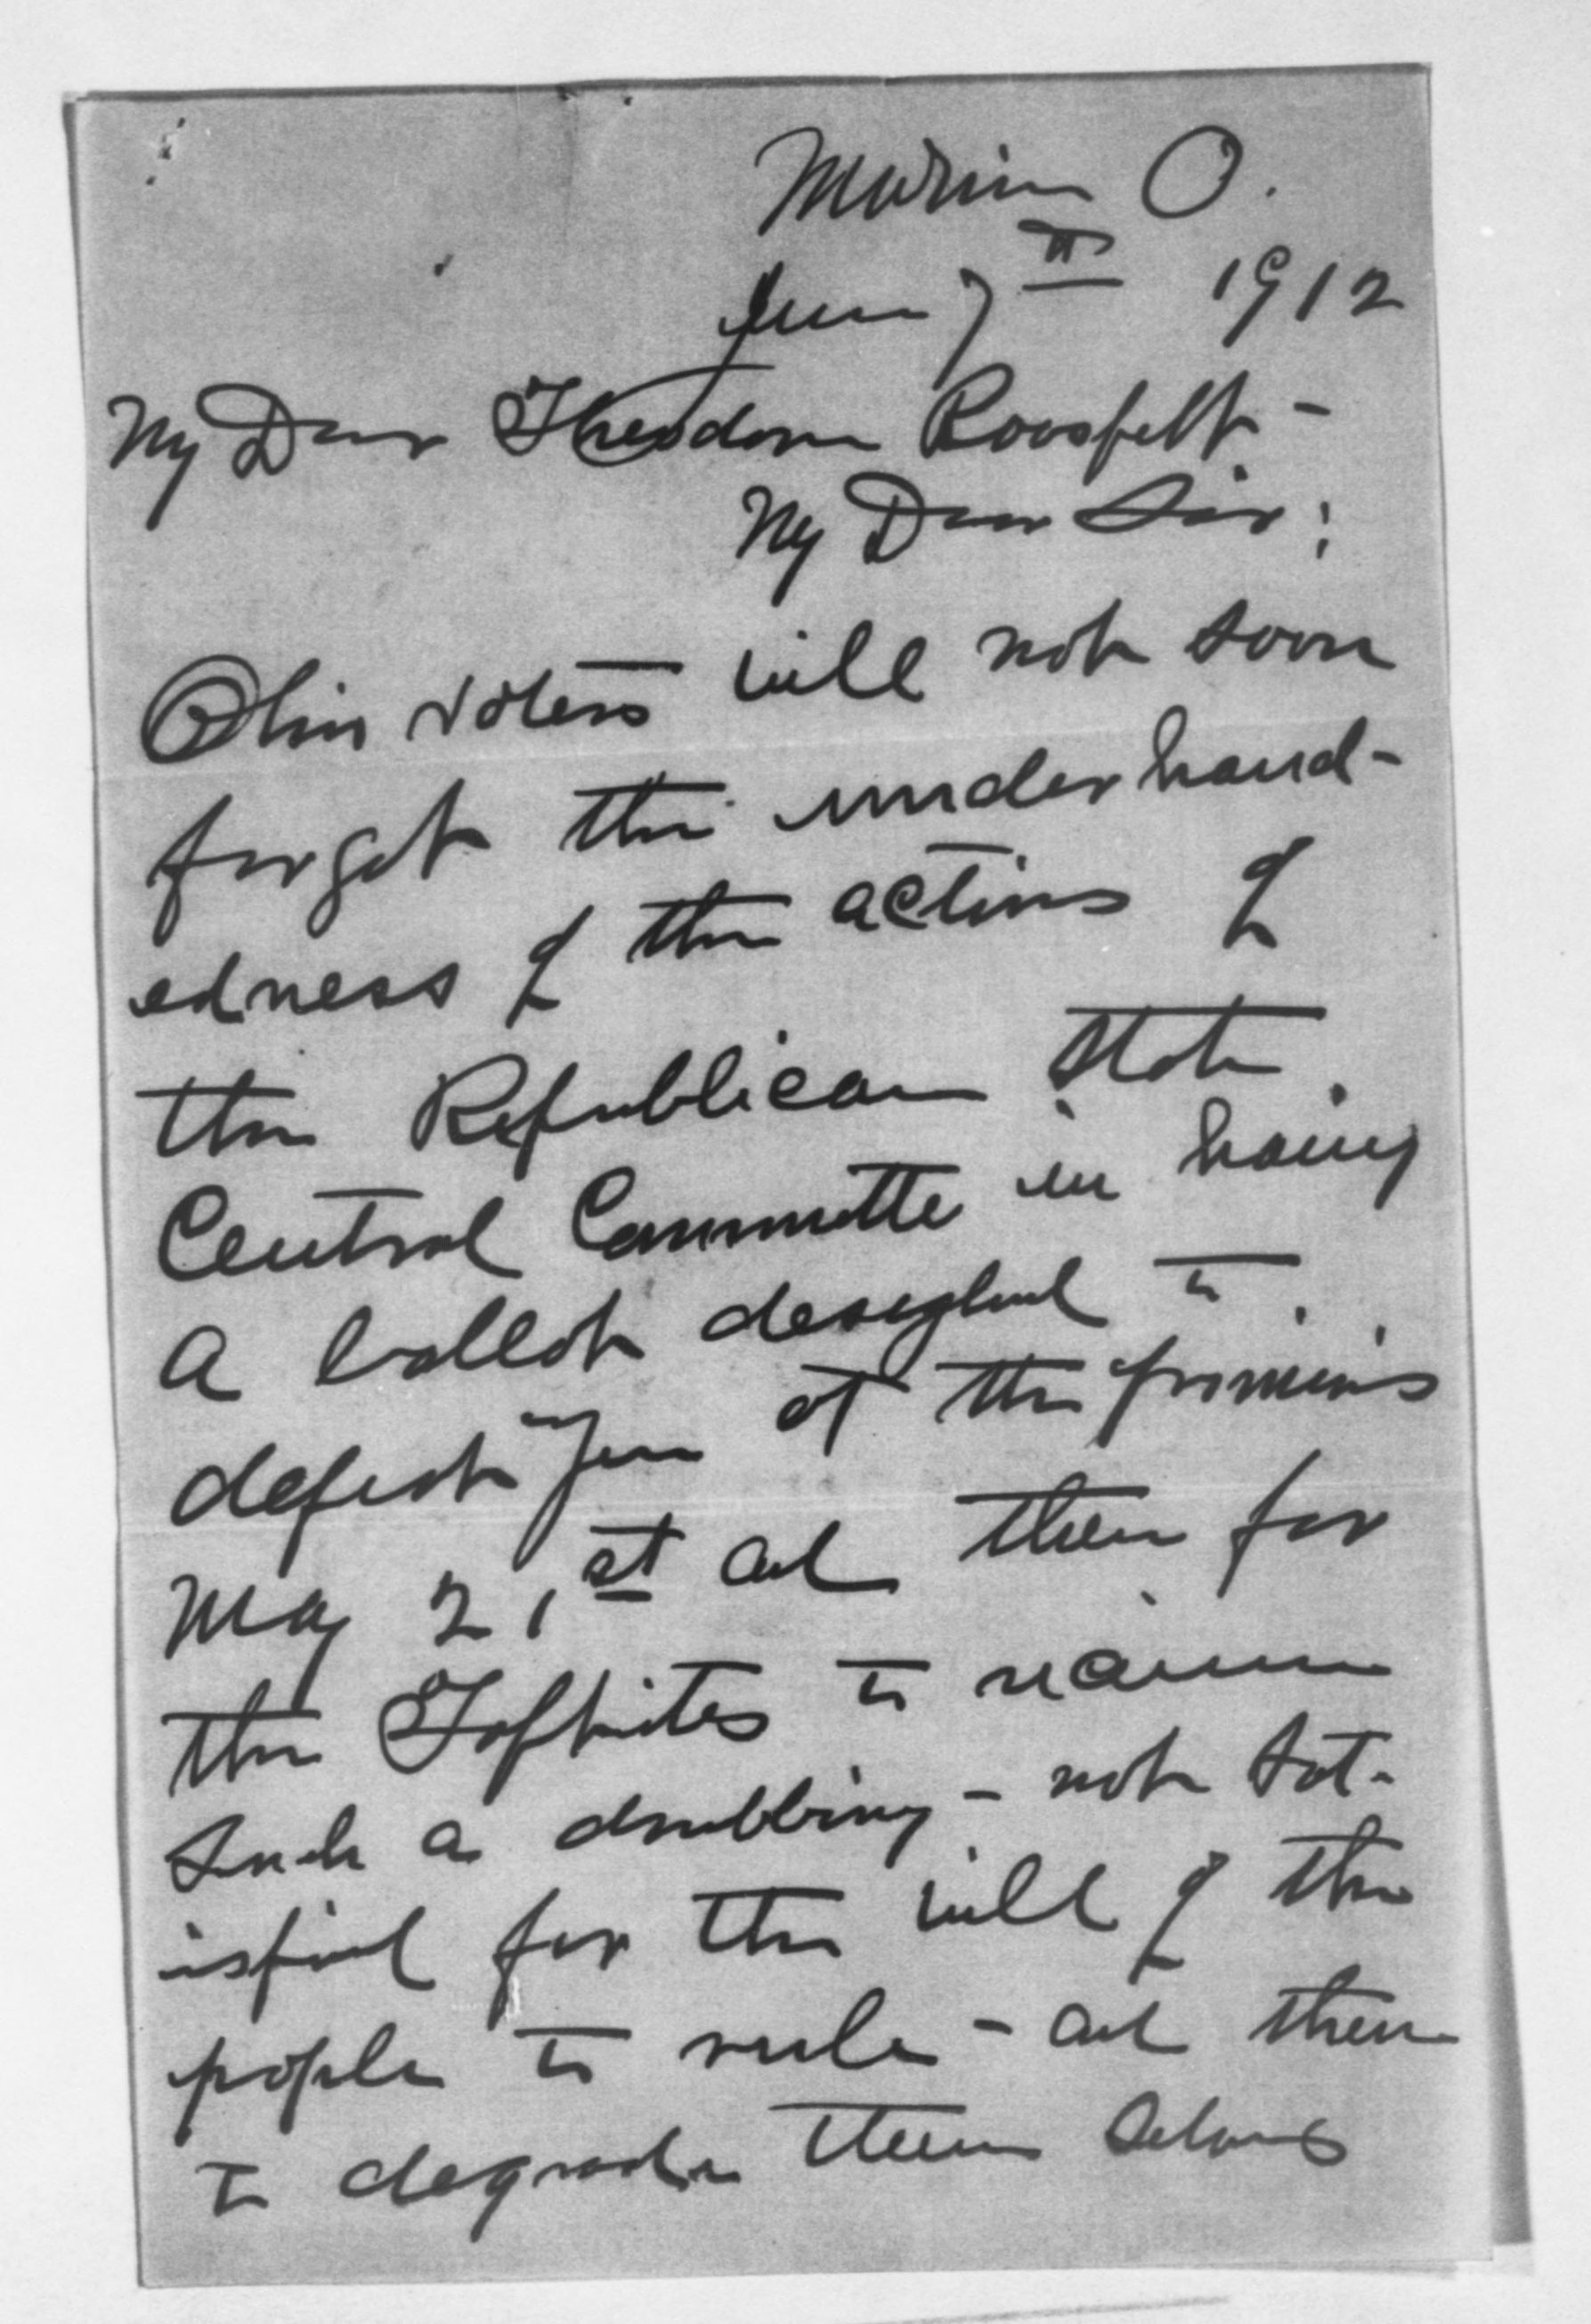 Marion O.
June 7th 1912
My Dear Theodore Roosevelt -
My Dear Sir:
Ohio voters will not soon
forget the underhand-
edness of the actions of
the Republican State
Central Committe in having
a ballot designed to
defeat you at the primaries
May 21st and then for
the Taftites to receive
such a drubbing - not sat-
isfied for the will of the
people to rule - and then
to degrade them selves